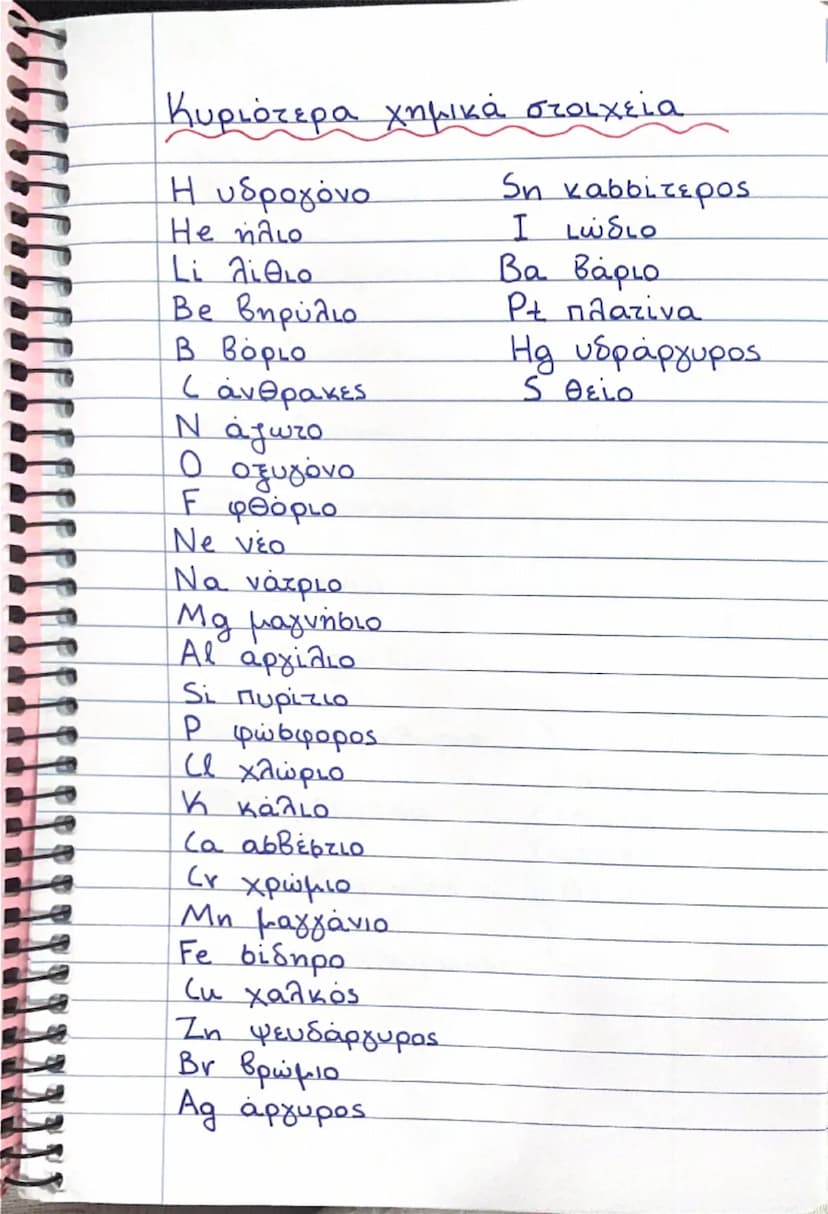 Κυριότερα χημικά στοιχεία
H υδρογόνο
He ήλιο
Li λίθιο
Be βηρύλιο
B βόριο
C άνθρακες
N άζωτο
O οξυγόνο
F φθόριο
Ne νέο
Na νάτριο
Mg μαγνήσιο
Al αργίλιο
Si πυρίτιο
P φώσφορος
Cl χλώριο
K κάλιο
Ca ασβέστιο
Cr χρώμιο
Mn μαγγάνιο
Fe σίδηρο
Cu χαλκός
Zn ψευδάργυρος
Br βρώμιο
Ag άργυρος
Sn κασσίτερος
I ιώδιο
Ba βάριο
Pt πλατίνα
Hg υδράργυρος
S θείο